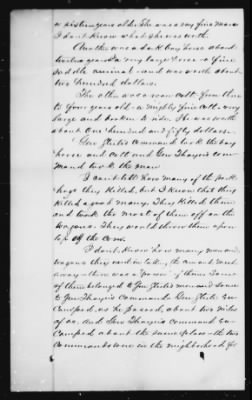 a sixteen years old. She was a very fine mare
I don't know what she was worth.
Another was a dark bay horse about
twelve years a very large horse - a fine
saddle animal and was worth about
two hundred dollars.
The other was a roan colt from three
to four years old - a mighty fine colt very
large and broken to ride. She was worth
about one hundred and fifty dollars.
Gen Steele's command took the bay
horse and colt and Gen Thayer's com-
mand took the mare
I can't tell how many of the pork
hogs they killed, but I know that they
killed a good many. They killed them
and took the most of them off on the
wagons. They would throw them upon
top of the corn.
I don't know how many men or
wagons they used in taking the amount
away - there was a power of them. Some
of them belonged to Gen Steele's men and some
to Gen Thayer's command. Gen Steele en-
camped, as he passed, about two miles
of us, and Gen Thayer's command en-
camped about the same place - the two
commands were in the neighborhood for